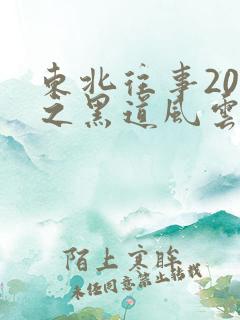 東北往事20
之黑道風雲
陌上寒眸
未经同意禁止转载